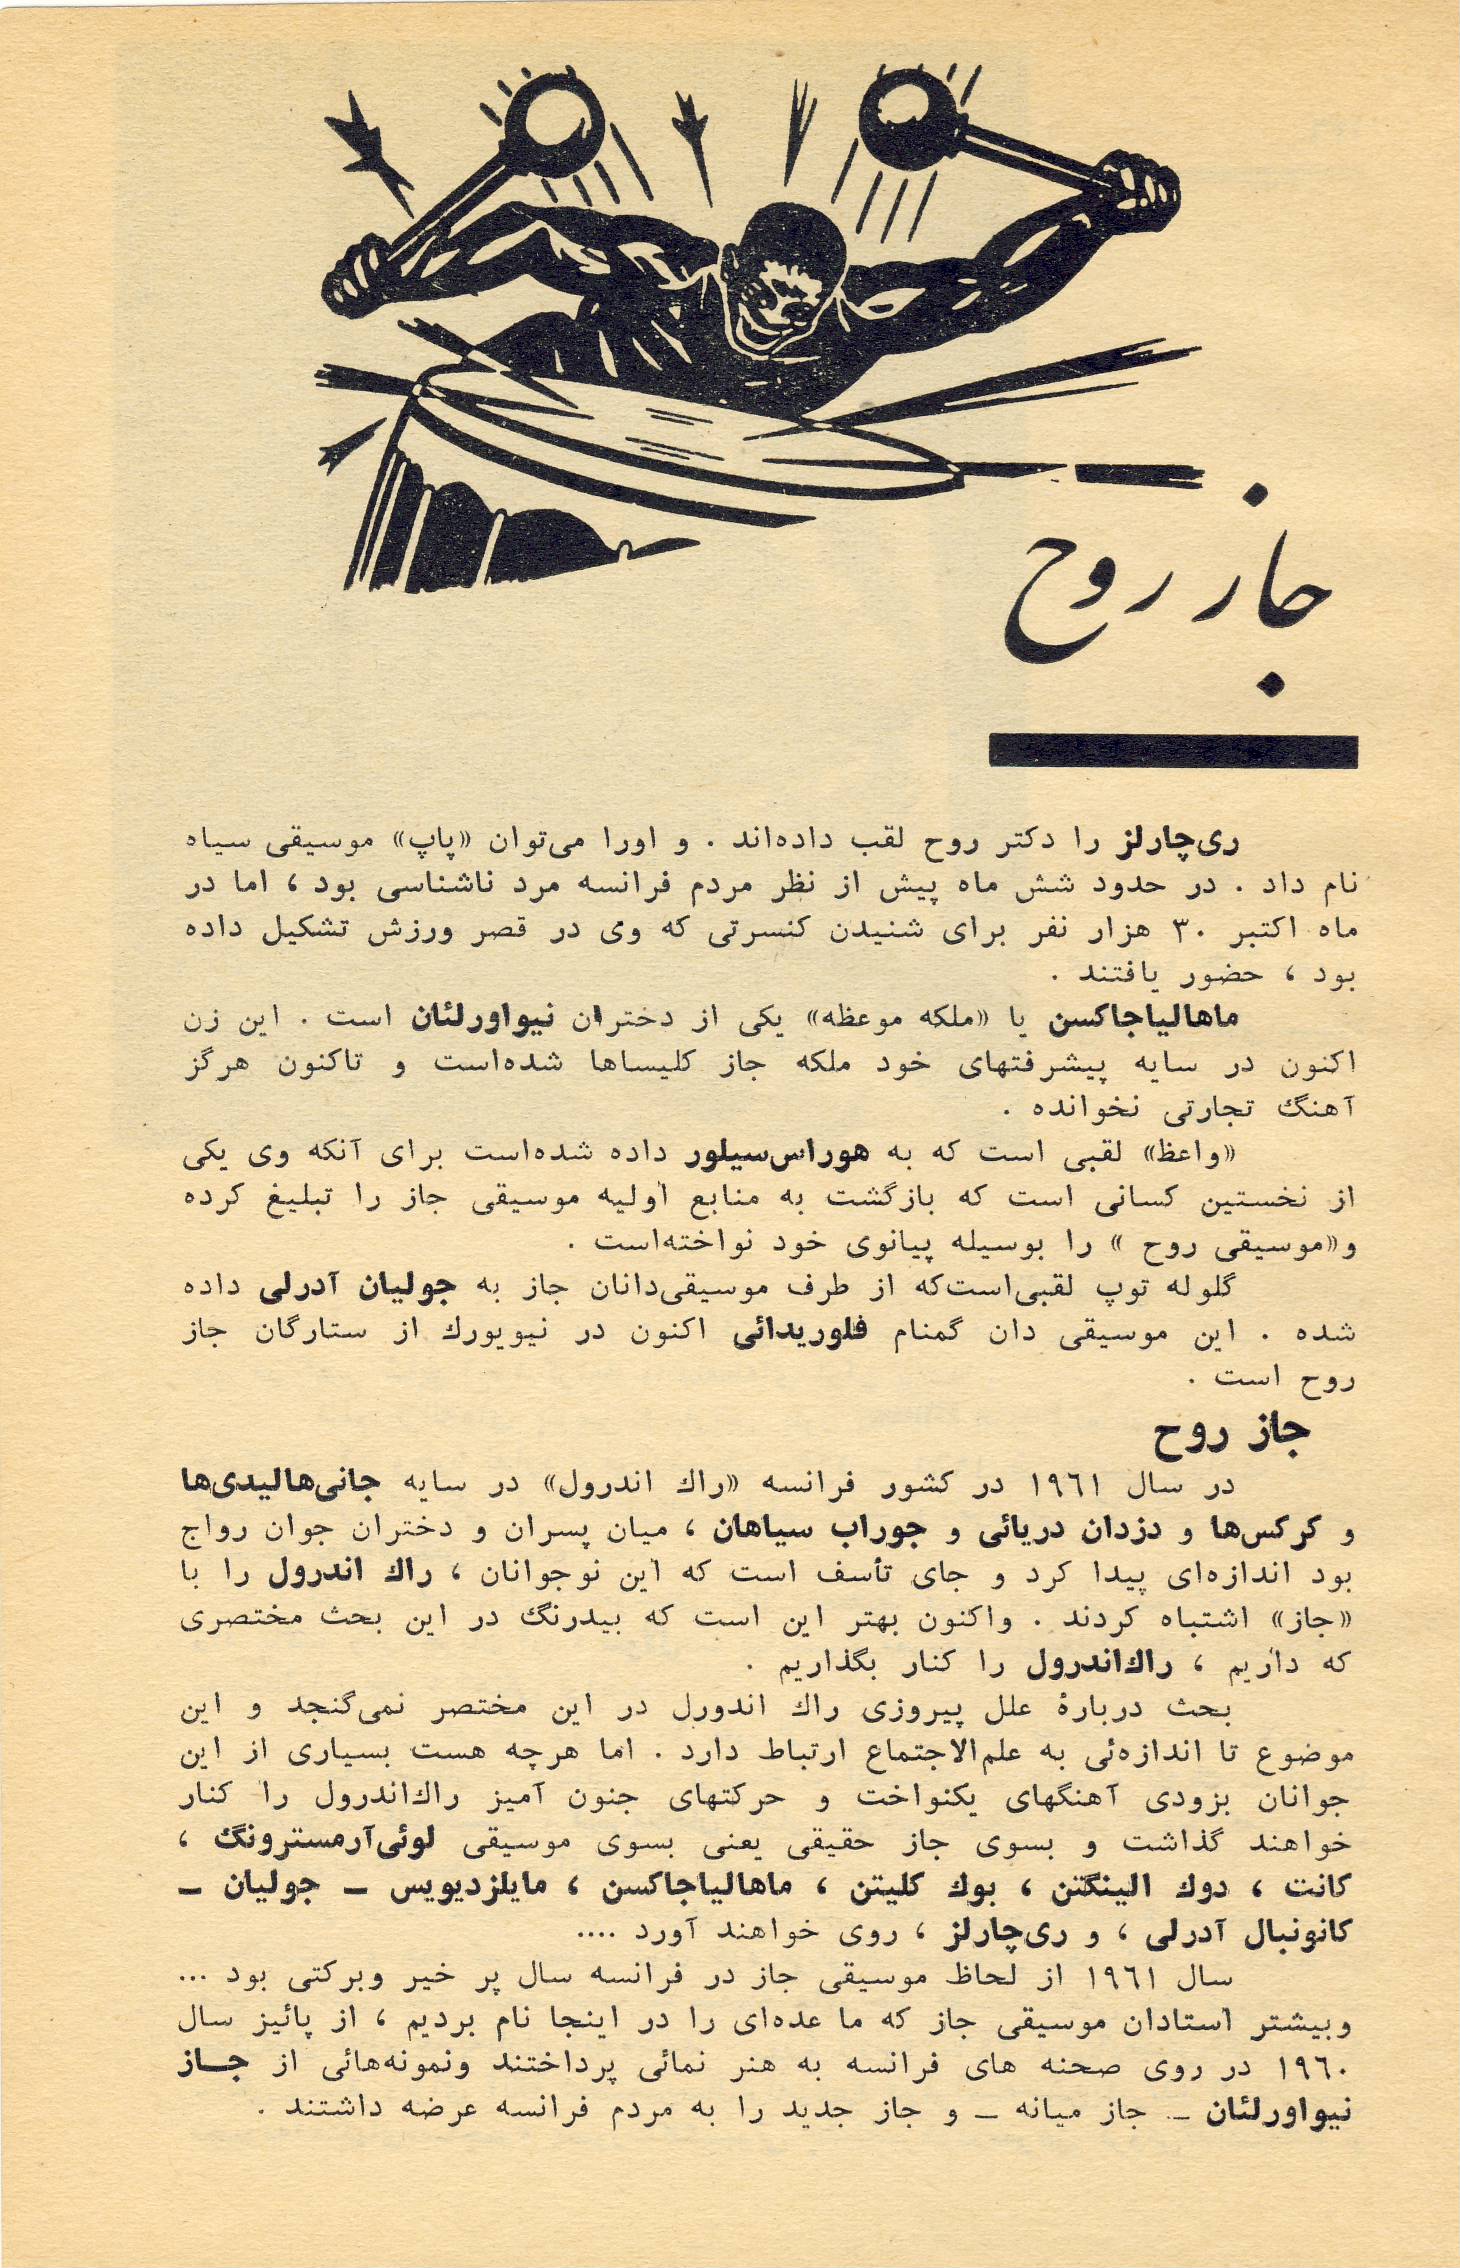 جاز روح
ری‌چارلز را دکتر روح لقب داده‌اند . و اورا می‌توان «پاپ» موسیقی سیاه
نام داد . در حدود شش ماه پیش از نظر مردم فرانسه مرد ناشناسی بود ، اما در
ماه اکتبر ۳۰ هزار نفر برای شنیدن کنسرتی که وی در قصر ورزش تشکیل داده
بود ، حضور یافتند .
ماهالیاجاکسن یا «ملکه موعظه» یکی از دختران نیواورلئان است . این زن
اکنون در سایه پیشرفتهای خود ملکه جاز کلیساها شده‌است و تاکنون هرگز
آهنگ تجارتی نخوانده .
«واعظ» لقبی است که به هوراس‌سیلور داده شده‌است برای آنکه وی یکی
از نخستین کسانی است که بازگشت به منابع اولیه موسیقی جاز را تبلیغ کرده
و«موسیقی روح » را بوسیله پیانوی خود نواخته‌است .
گلوله توپ لقبی‌است‌که از طرف موسیقی‌دانان جاز به جولیان آدرلی داده
شده . این موسیقی دان گمنام فلوریدائی اکنون در نیویورك از ستارگان جاز
روح است .
جاز روح
در سال ۱۹۶۱ در کشور فرانسه «راك اندرول» در سایه جانی‌هالیدی‌ها
و کرکس‌ها و دزدان دریائی و جوراب سیاهان ، میان پسران و دختران جوان رواج
بود اندازه‌ای پیدا کرد و جای تأسف است که این نوجوانان ، راك اندرول را با
«جاز» اشتباه کردند . واکنون بهتر این است که بیدرنگ در این بحث مختصری
که داریم ، راك‌اندرول را کنار بگذاریم .
بحث دربارهٔ علل پیروزی راك اندورل در این مختصر نمی‌گنجد و این
موضوع تا اندازه‌ئی به علم‌الاجتماع ارتباط دارد . اما هرچه هست بسیاری از این
جوانان بزودی آهنگهای یکنواخت و حرکتهای جنون آمیز راك‌اندرول را کنار
خواهند گذاشت و بسوی جاز حقیقی یعنی بسوی موسیقی لوئی‌آرمسترونگ ،
کانت ، دوك الینگتن ، بوك کلیتن ، ماهالیاجاکسن ، مایلزدیویس ـ جولیان ـ
کانونبال آدرلی ، و ری‌چارلز ، روی خواهند آورد ....
سال ۱۹۶۱ از لحاظ موسیقی جاز در فرانسه سال پر خیر وبرکتی بود ...
وبیشتر استادان موسیقی جاز که ما عده‌ای را در اینجا نام بردیم ، از پائیز سال
۱۹۶۰ در روی صحنه های فرانسه به هنر نمائی پرداختند ونمونه‌هائی از جـاز
نیواورلئان ـ جاز میانه ـ و جاز جدید را به مردم فرانسه عرضه داشتند .